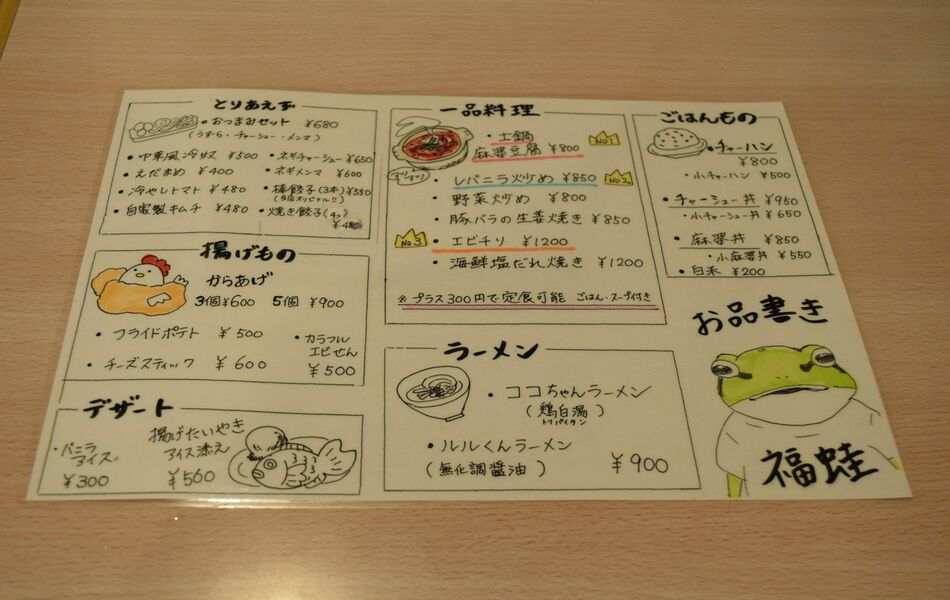 とりあえず
・おつまみセット ¥680
(うずら・チャーシュー・メンマ)
・中華風冷奴 ¥500
・えだまめ ¥400
・冷やしトマト ¥480
・自家製キムチ ¥480
・ネギチャーシュー ¥650
・ネギメンマ ¥600
・棒餃子(3本) ¥550
(当店オリジナル!!)
・焼き餃子(4コ)
揚げもの
からあげ
3個¥600 5個 ¥900
・フライドポテト ¥500
・チーズスティック ¥600
・カラフル
エビせん
¥500
デザート
・バニラ
アイス
¥300
揚げたいやき
アイス添え
¥560
一品料理
・土鍋
麻婆豆腐 ¥800
No1
アツアツ
・レバニラ炒め ¥850
No2
・野菜炒め ¥800
・豚バラの生姜焼き ¥850
No3
・エビチリ ¥1200
・海鮮塩だれ焼き ¥1200
※プラス300円で定食可能 ごはん・スープ付き
ラーメン
・ココちゃんラーメン
(鶏白湯)
トリパイタン
・ルルくんラーメン
(無化調醤油)
¥900
ごはんもの
・チャーハン
¥800
・小チャーハン ¥500
・チャーシュー丼 ¥950
・小チャーシュー丼 ¥650
・麻婆丼 ¥850
・小麻婆丼 ¥550
・白米 ¥200
お品書き
福蛙